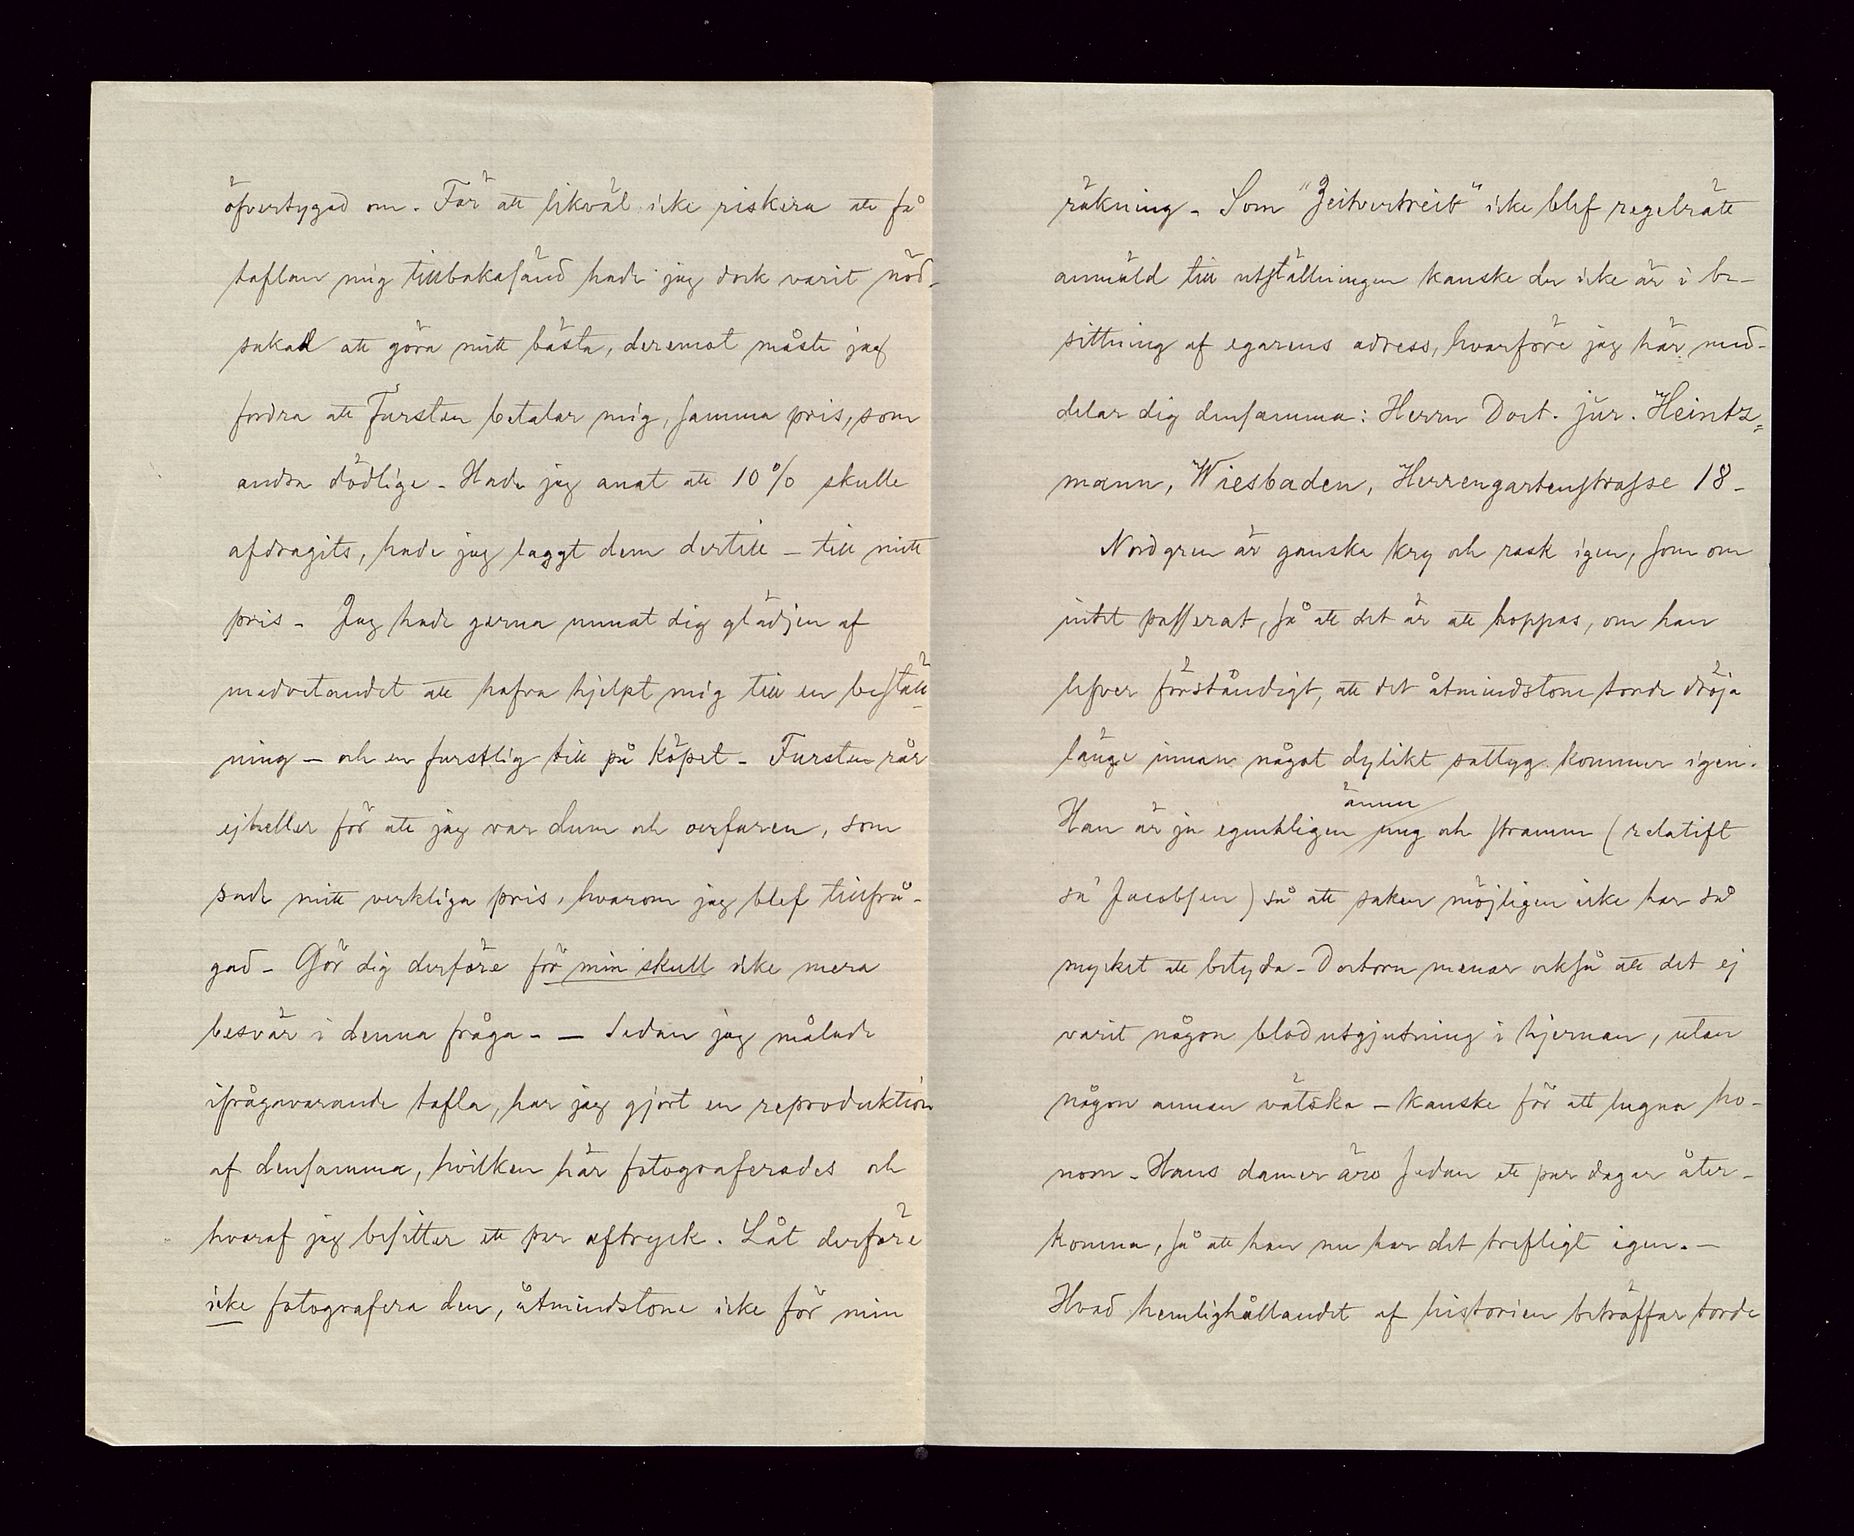 öfvertygad om. För att likväl icke riskera att få
taflan mig tillbakasänd hade jag dock varit nöd-
sakad att göra mitt bästa, deremot måste jag
fordra att Fursten betalar mig, samma pris, som
andra dödlige. Hade jag anat att 10% skulle
afdragits, hade jag laggt dem dertill – till mitt
pris. Jag hade gerna unnat dig glädjen af
medvetandet att hafva hjelpt mig till en beställ-
ning – och en furstlig till på köpet. Fursten rår
ejheller för att jag var dum och oerfaren, som
sade mitt verkliga pris, hvarom jag blef tillfrå-
gad. Gör dig derföre för min skull icke mera
besvär i denna fråga. – Sedan jag målade
ifrågavarande tafla, har jag gjort en reproduktion
af densamma, hvilken här fotograferades och
hvaraf jag besitter ett par aftryck. Låt derföre
icke fotografera den, åtmindstone icke för min
räkning. Som "Zeitvertreib" icke blef regelrätt
anmäld till utställningen kanske du icke är i be-
sittning af egarens adress, hvarföre jag här med-
delar dig densamma: Herrn Doct. jur. Heintz=
mann, Wiesbaden, Herrengartenstrasse 18.
Nordgren är ganska kry och rask igen, som om
intet passerat, så att det är att hoppas, om han
lefver förståndigt, att det åtmindstone torde dröja
länge innan något dylikt sattyg kommer igen.
Han är ju egentligen ännu ung och stramm (relatift
sa' Jacobsen) så att saken möjligen icke har så
mycket att betyda. Doctorn menar också att det ej
varit någon blodutgjutning i hjernan, utan
någon annan vätska – kanske för att lugna ho-
nom. Hans damer äro sedan ett par dagar åter-
komna, så att han nu har det trefligt igen. –
Hvad hemlighållandet af historien beträffar torde